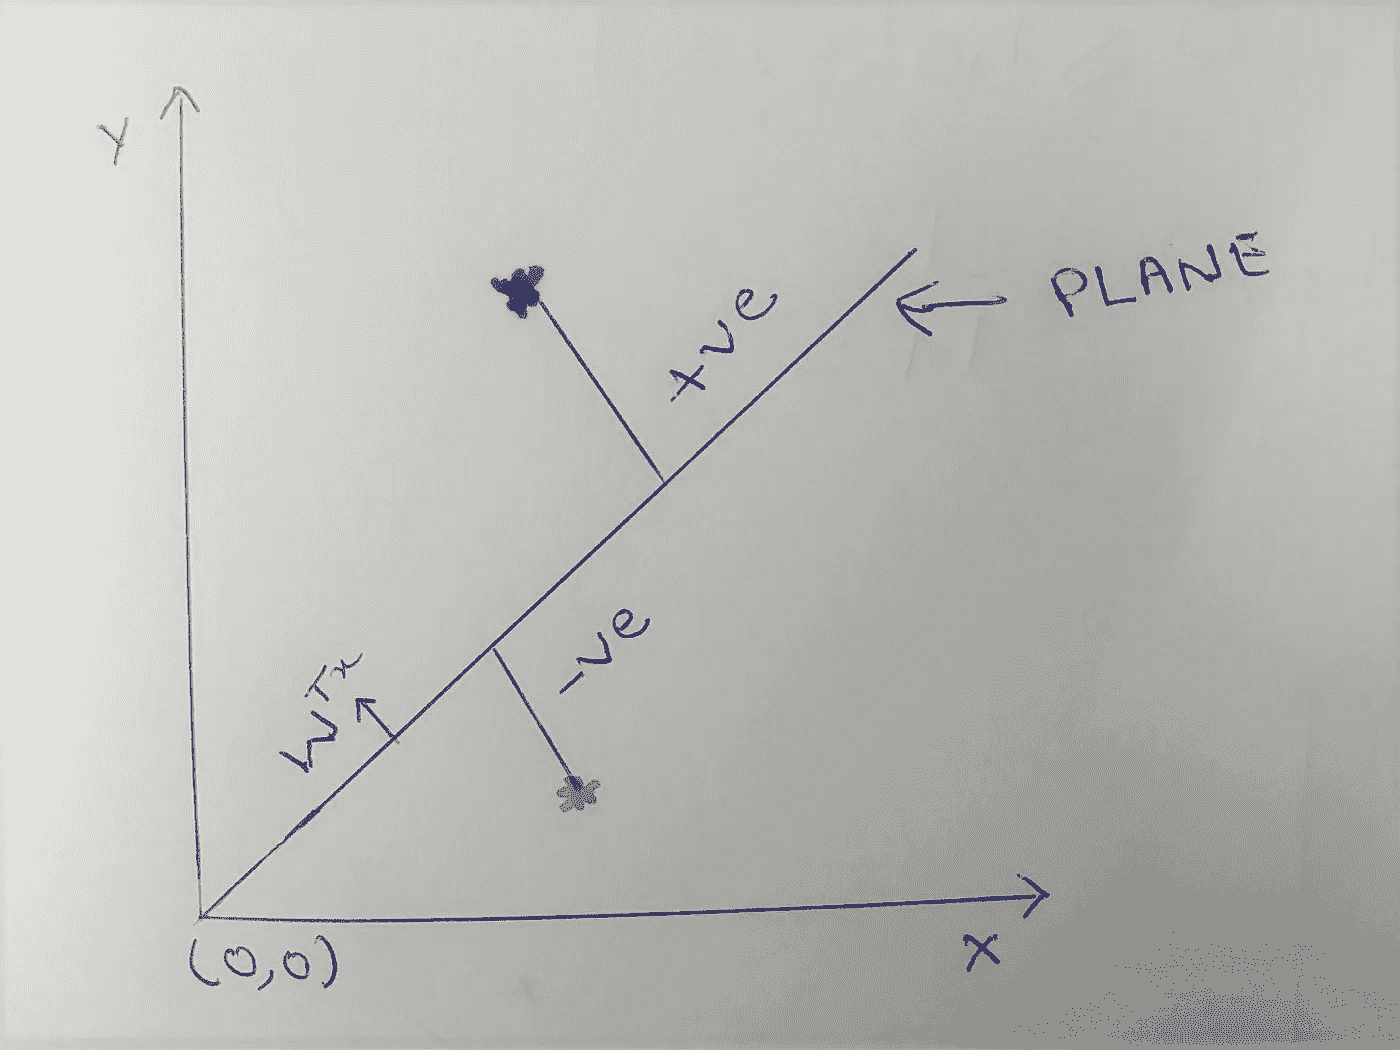 Y
PLANE
+ve
-ve
WTx
(0,0)
X